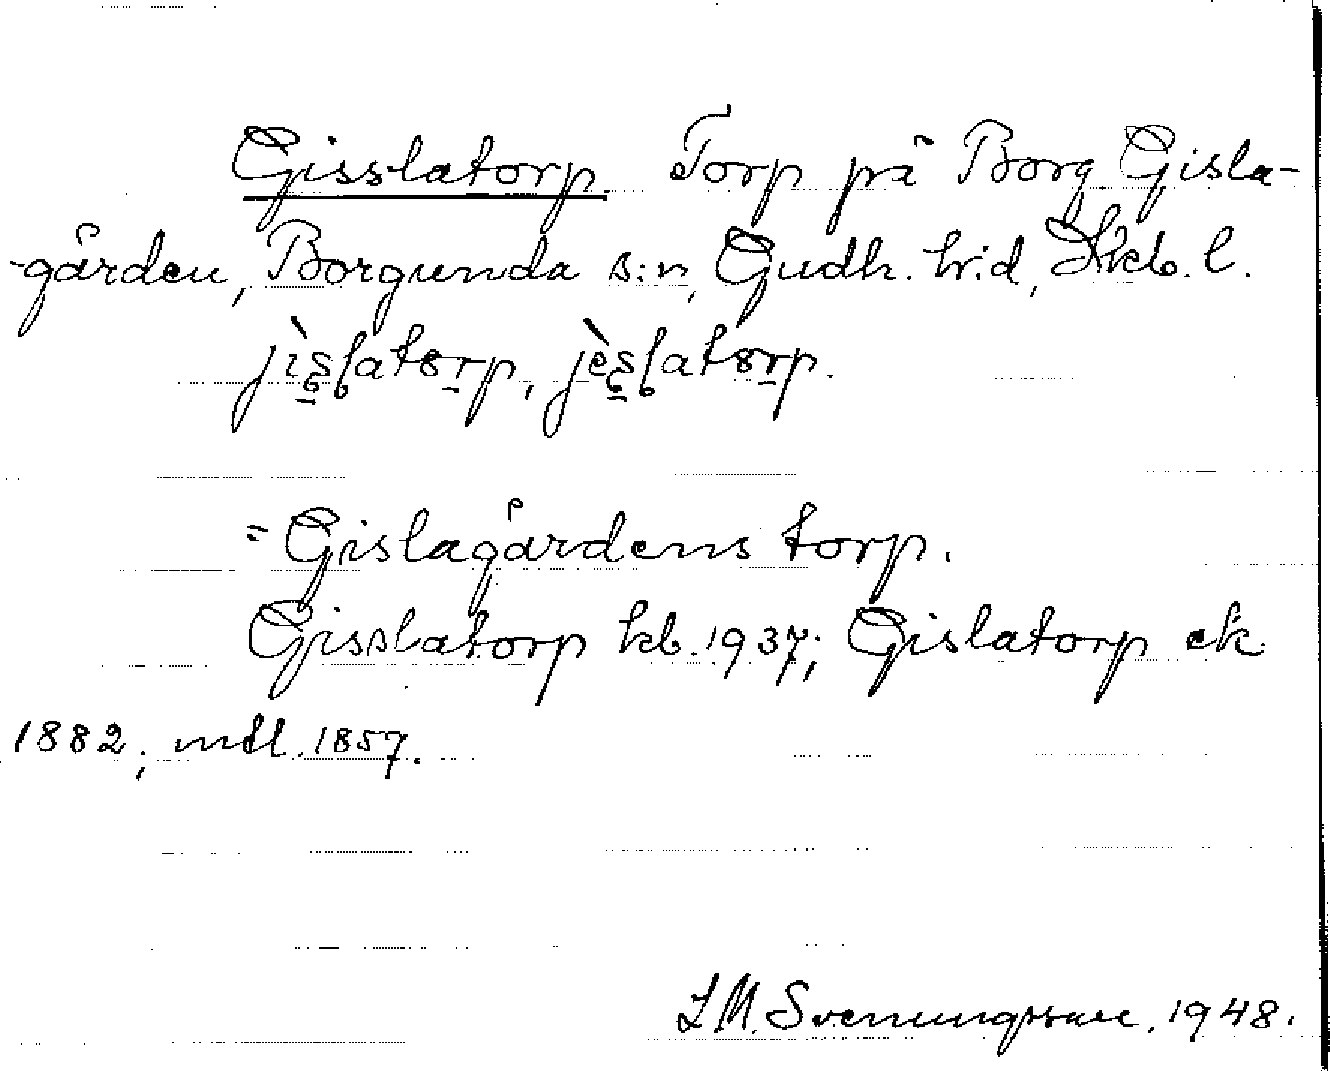 Gisslatorp. Torp på Borg Gisla-
-gården, Borgunda s:n, Gudh. h:d, Skb. l.
jìs̱latoṟp, jès̱latoṟp.
= Gislagårdens torp.
Gisslatorp kb. 1937; Gislatorp ek
1882; mtl. 1857.
L M. Svenungsson. 1948.